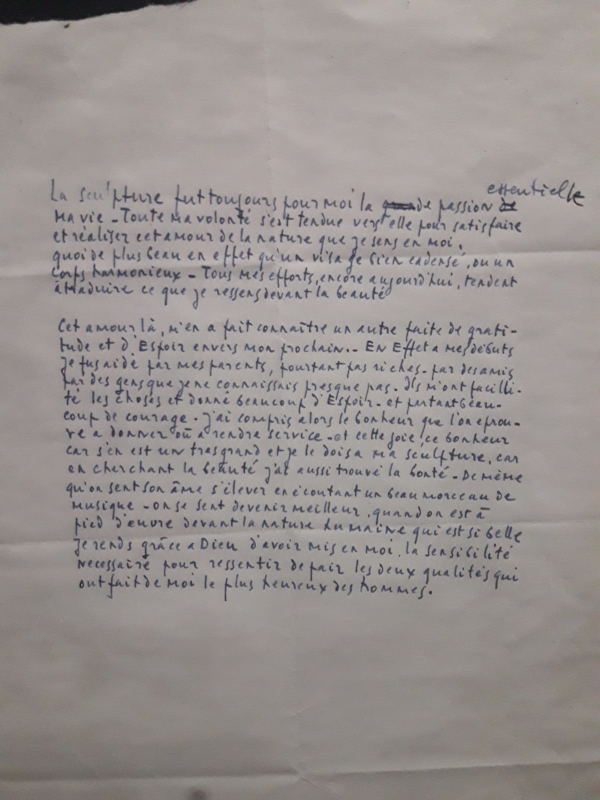 La sculpture fut toujours pour moi la grande passion essentielle de
ma vie - Toute ma volonté s'est tendue vers elle pour satisfaire
et réaliser cet amour de la nature que je sens en moi.
quoi de plus beau en effet qu'un visage bien cadensé, ou un
corps harmonieux - Tous mes efforts, encore aujourd'hui, tendent
à traduire ce que je ressens devant la beauté
Cet amour là, m'en a fait connaître un autre faite de grati-
tude et d'Espoir envers mon prochain. - En Effet a mes débuts
je fus aidé par mes parents, pourtant pas riches - par des amis
par des gens que je ne connaissais presque pas. Ils m'ont facili-
té les choses et donné beaucoup d'Espoir - et partant beau-
coup de courage. j'ai compris alors le bonheur que l'on eprou-
ve a donner où a rendre service - et cette joie, ce bonheur
car s'en est un tres grand et je le dois a ma sculpture, car
en cherchant la beauté j'ai aussi trouvé la bonté - De même
qu'on sent son âme s'élever en écoutant un beau morceau de
musique - on se sent devenir meilleur, quand on est à
pied d'œuvre devant la nature humaine qui est si belle
Je rends grâce a Dieu d'avoir mis en moi, la sensibilité
necessaire pour ressentir de pair les deux qualités qui
ont fait de moi le plus heureux des hommes.